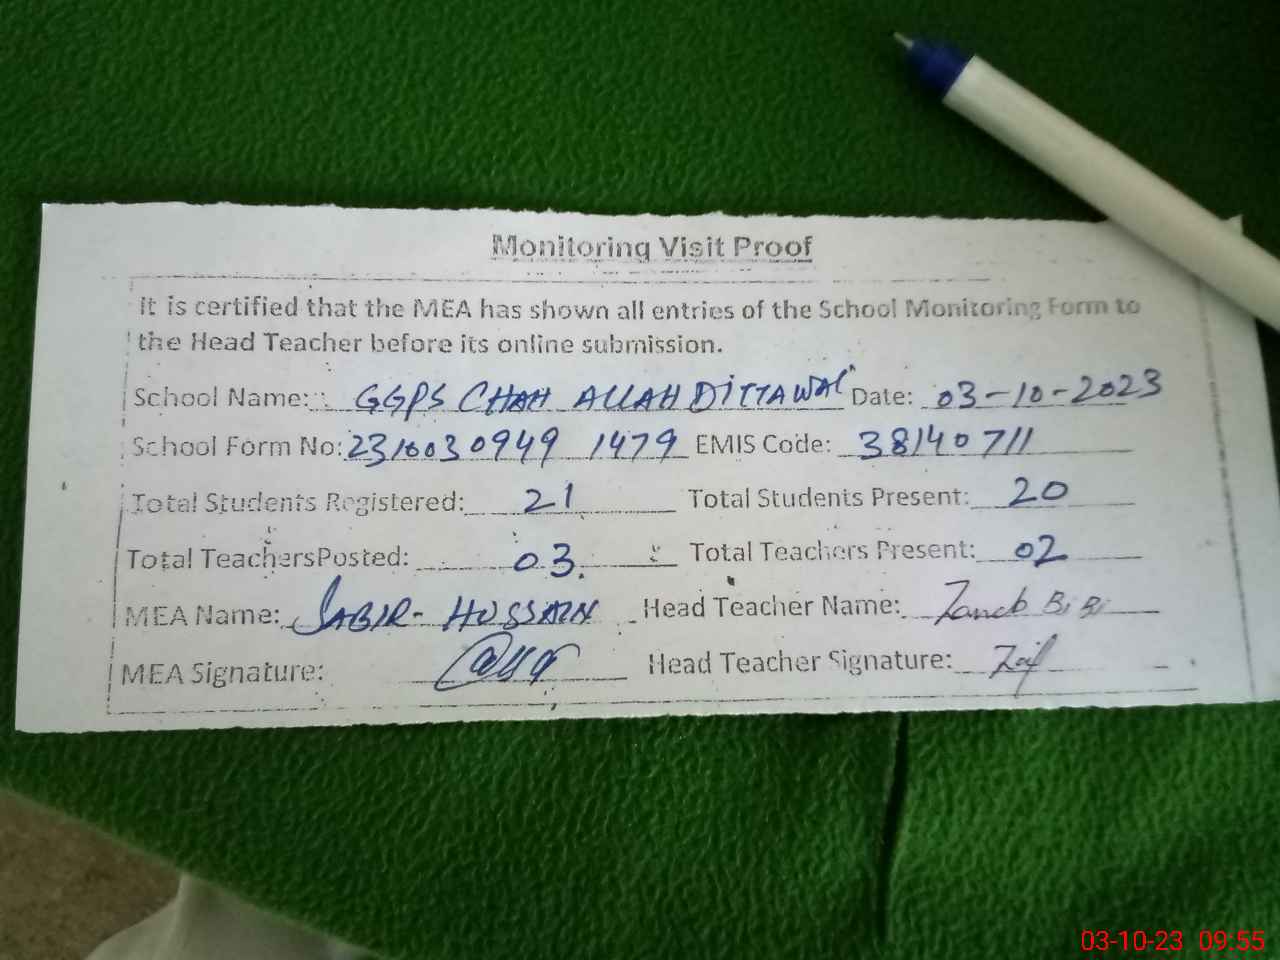 Monitoring Visit Proof
It is certified that the MEA has shown all entries of the School Monitoring Form to
the Head Teacher before its online submission.
School Name: GGPS CHAH ALLAH DITTAWAL Date: 03-10-2023
School Form No: 2310030949 1479 EMIS Code: 38140711
Total Students Registered: 21 Total Students Present: 20
Total TeachersPosted: 03. Total Teachers Present: 02
MEA Name: SABIR- HUSSAIN Head Teacher Name: Zaneb Bi Bi
MEA Signature: Head Teacher Signature:
03-10-23 09:55